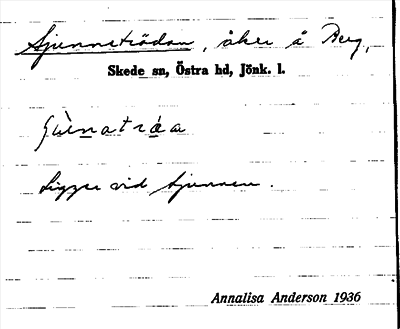 Sjunnströdan, åker å Berg,
Skede sn, Östra hd, Jönk. l.
Ligger vid Sjunnen.
Annalisa Anderson 1936